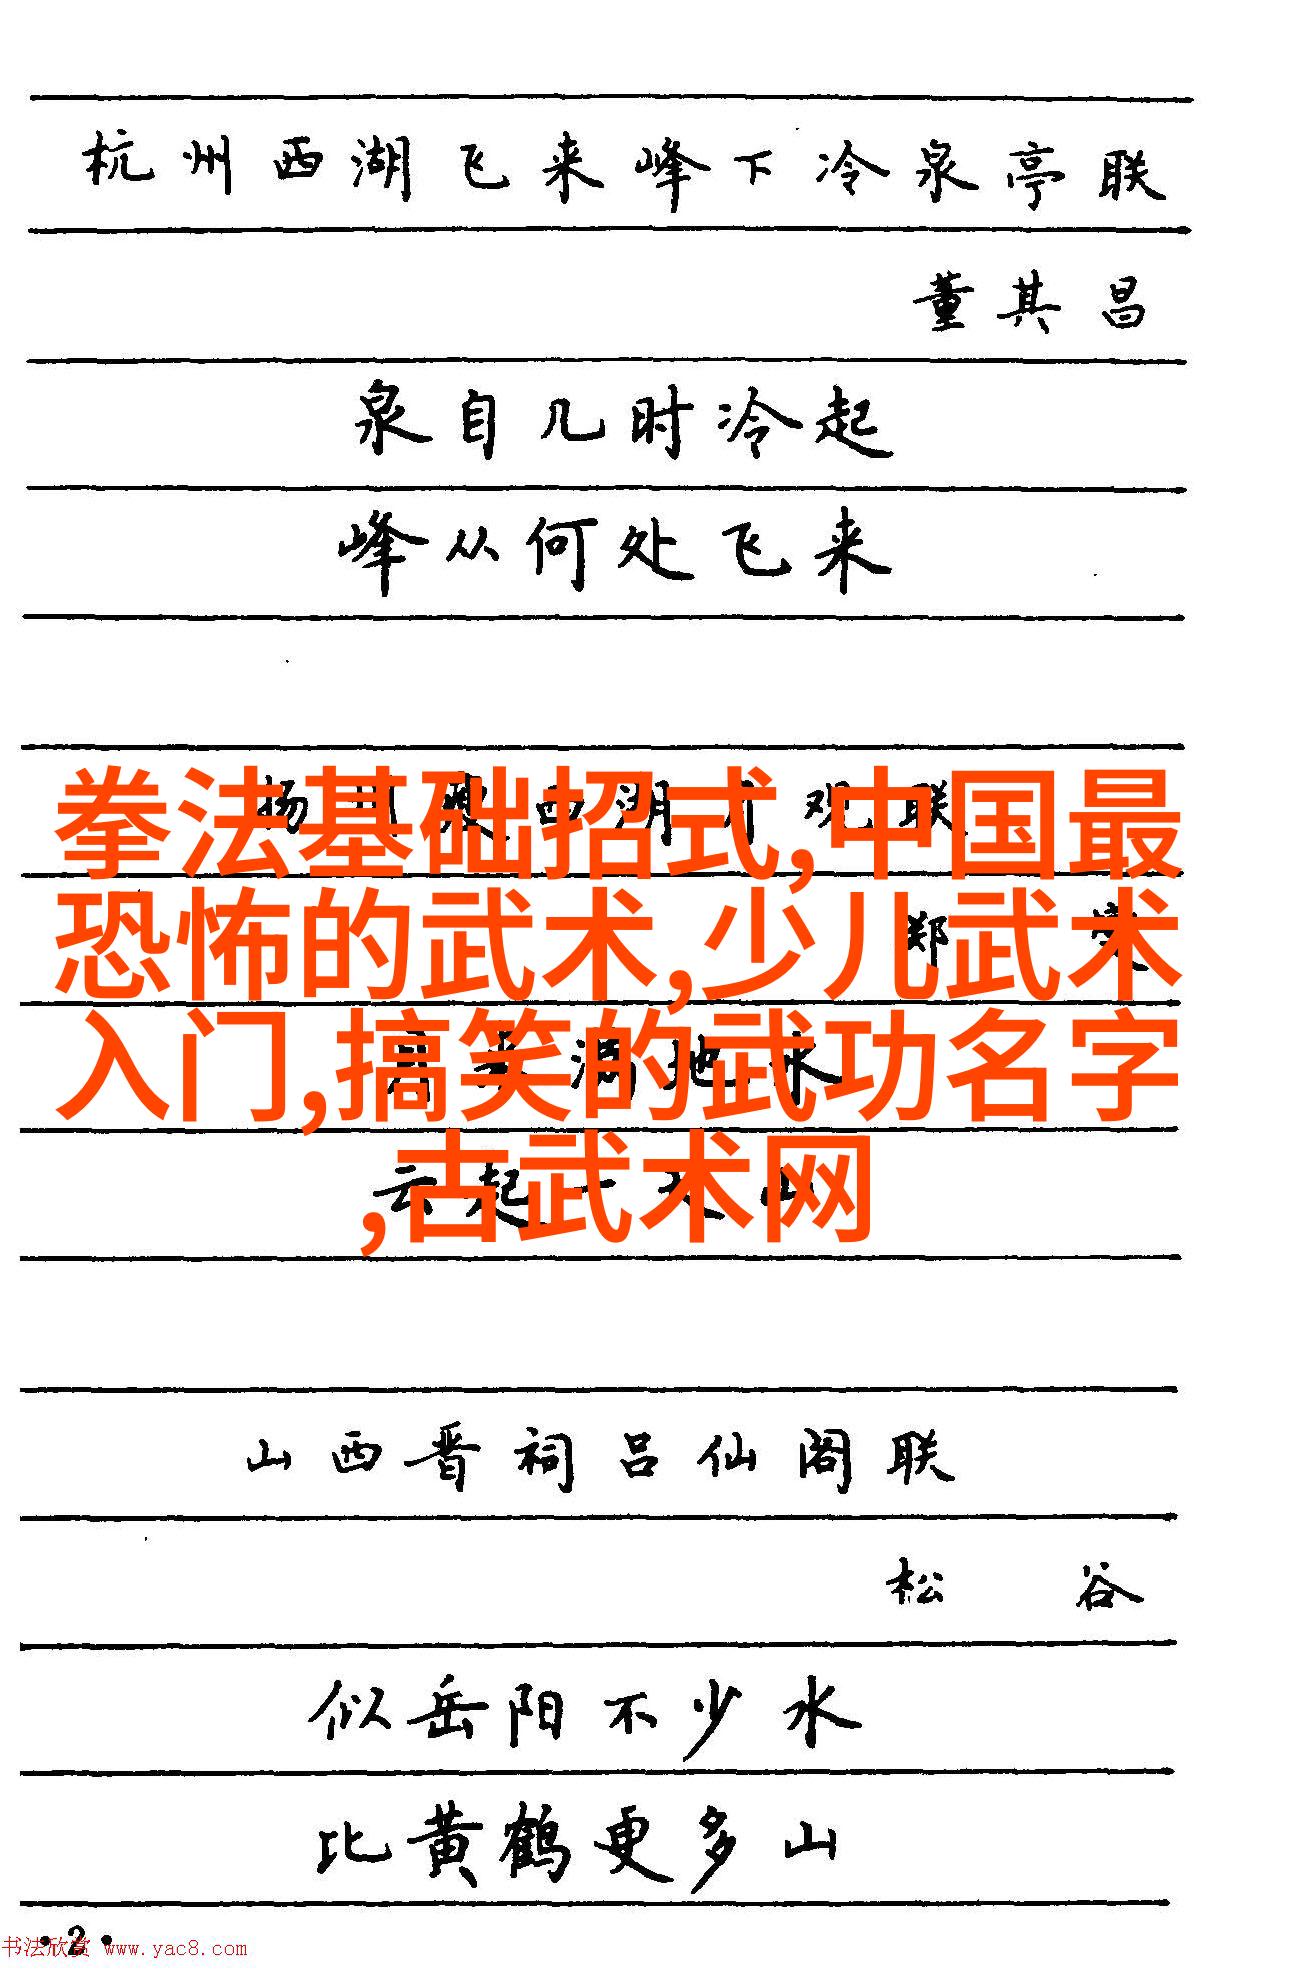 杭州西湖飞来峰下冷泉亭联
董其昌
泉自几时冷起
峰从何处飞来
拳法基础招式,中国最
恐怖的武术,少儿武术
入门,搞笑的武功名字
,古武术网
山西晋祠吕仙阁联
松谷
似岳阳不少水
比黄鹤更多山
·2·
书法欣赏 www.yac8.com